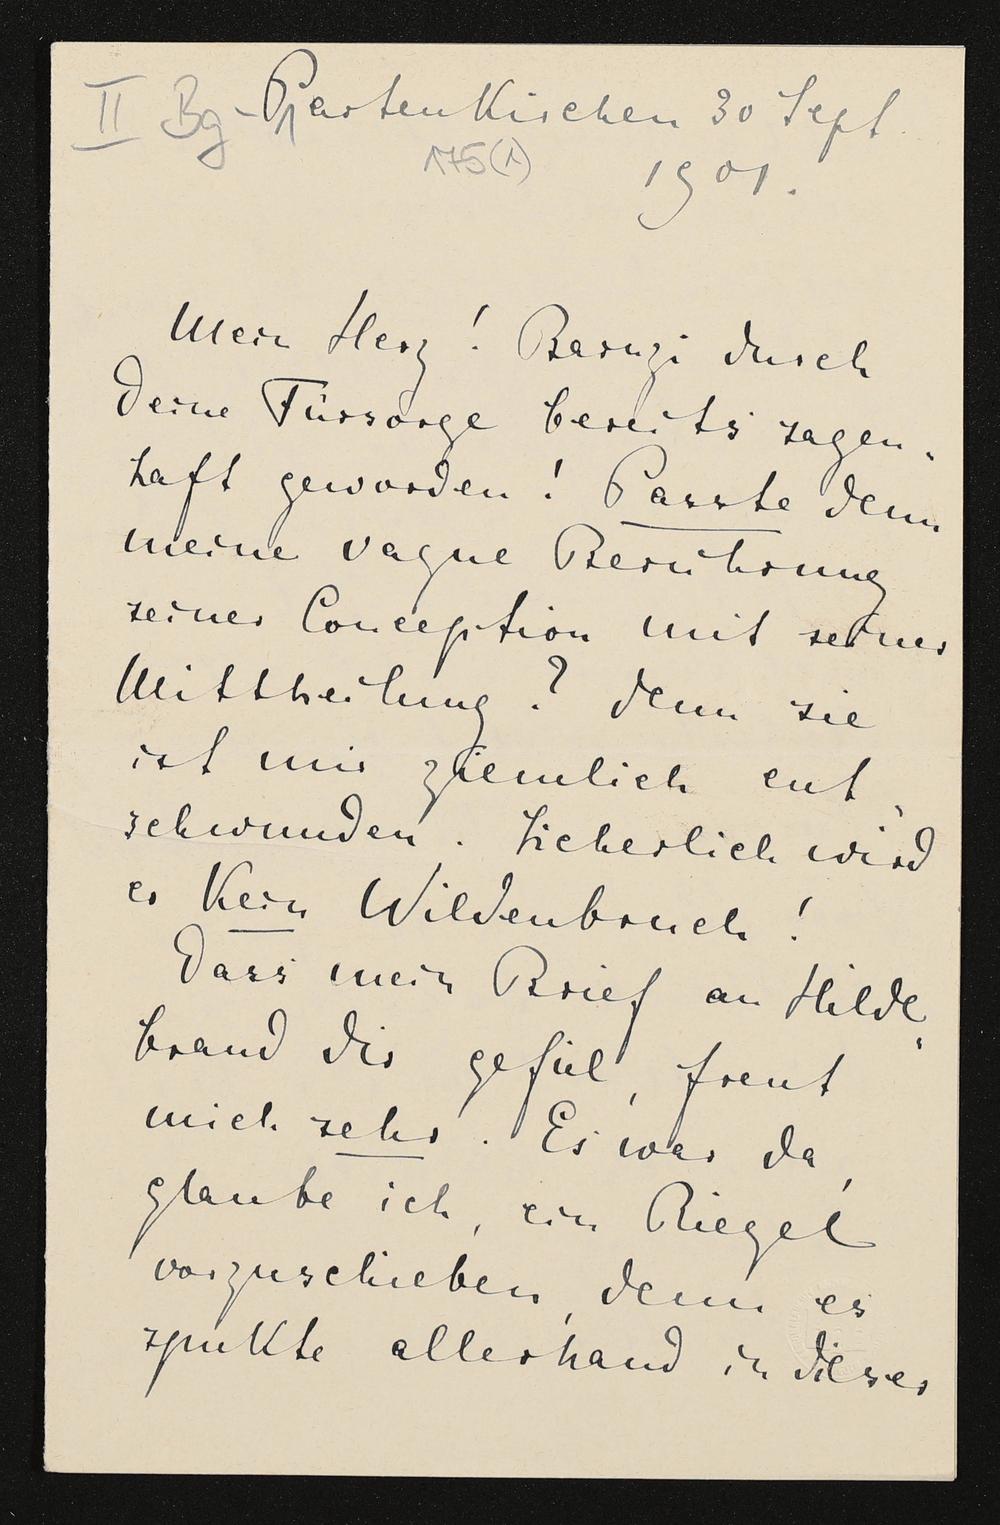 II Bg - Partenkirchen 30 Sept.
175(1)
1901.
Mein Herz! Baruzi durch
Deine Fürsorge bereits sagen-
haft geworden! Passte denn
meine vague Berührung
seiner Conception mit seiner
Mittheilung? denn sie
ist mir ziemlich ent-
schwunden. Sicherlich wird
er kein Wildenbruch!
Dass mein Brief an Hilde-
brand dir gefiel, freut
mich sehr. Es war da,
glaube ich, ein Riegel
vorzuschieben, denn es
spukte allerhand in dieser